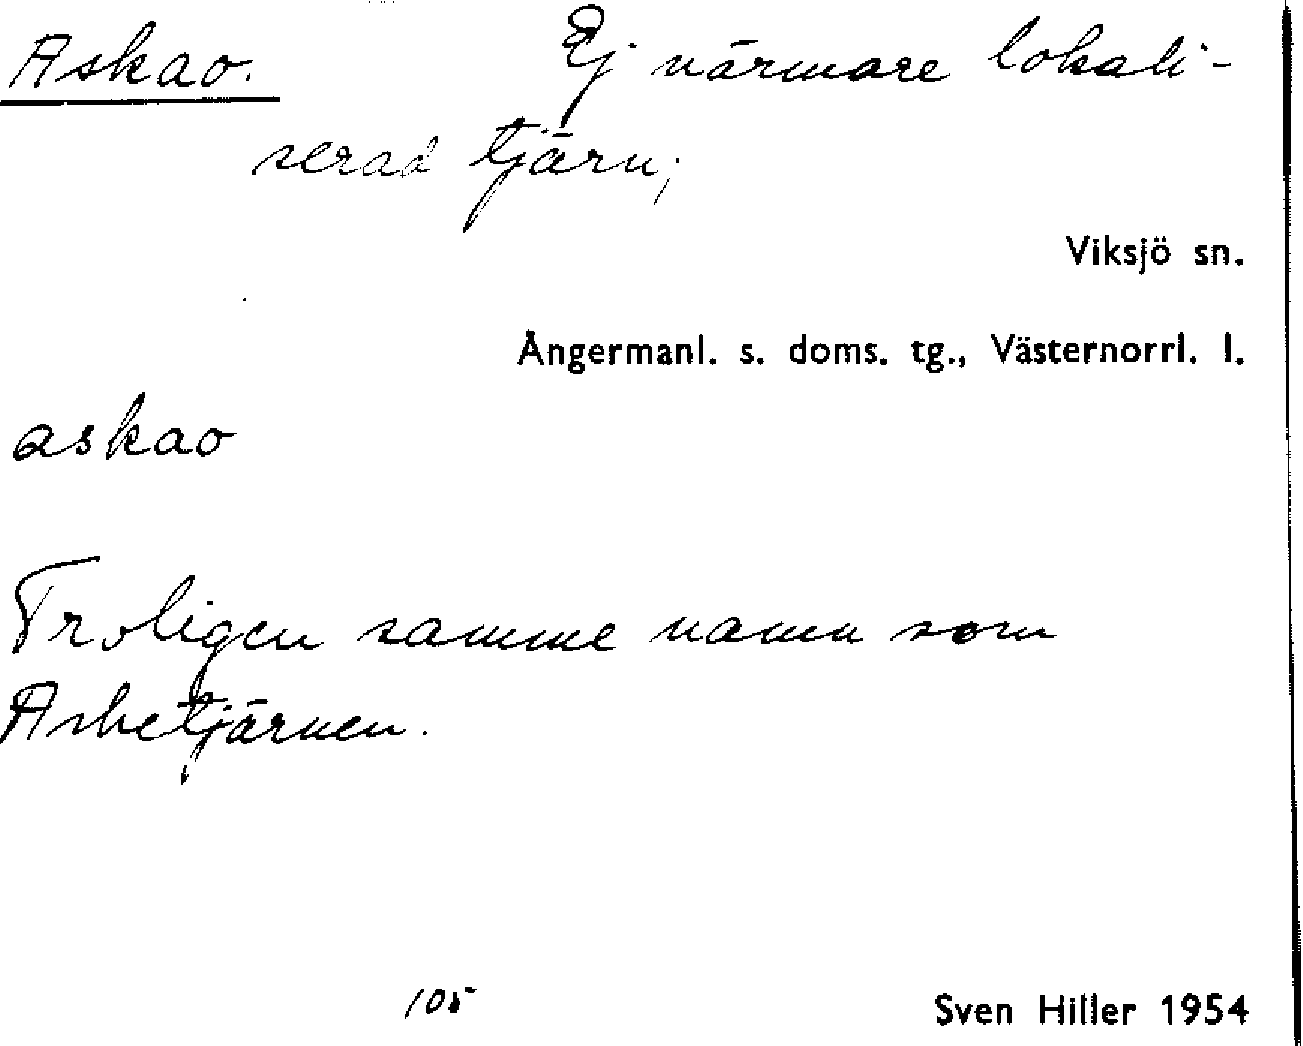 Askao. Ej närmare lokali-
serad tjärn;
Viksjö sn.
Ångermanl. s. doms. tg., Västernorrl. l.
askao
Troligen samme namn som
Asketjärnen.
105
Sven Hiller 1954